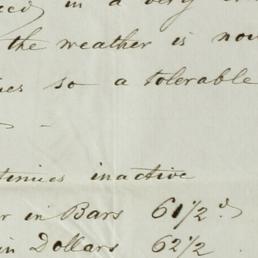 in a very
the weather is now
so a tolerable
inactive
in Bars 61 1/2 d
in Dollars 62 1/2